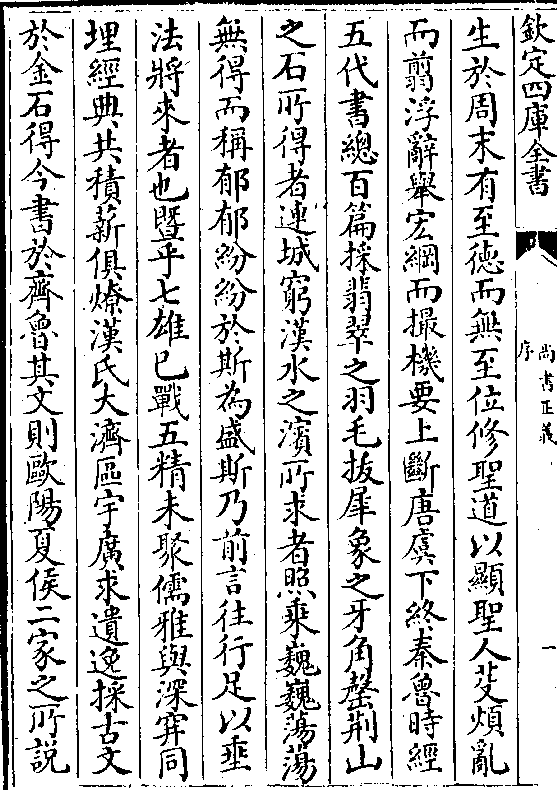 欽定四庫全書
尚書正義
序
一
生於周末有至德而無至位修聖道以顯聖人芟煩亂
而翦浮辭舉宏綱而撮機要上斷唐虞下終秦魯時經
五代書總百篇採翡翠之羽毛拔犀象之牙角罄荆山
之石所得者連城窮漢水之濱所求者照乘巍巍蕩蕩
無得而稱郁郁紛紛於斯為盛斯乃前言往行足以垂
法將來者也暨乎七雄已戰五精未聚儒雅與深穽同
埋經典共積薪俱燎漢氏大濟區宇廣求遺逸採古文
於金石得今書於齊魯其文則歐陽夏侯二家之所説